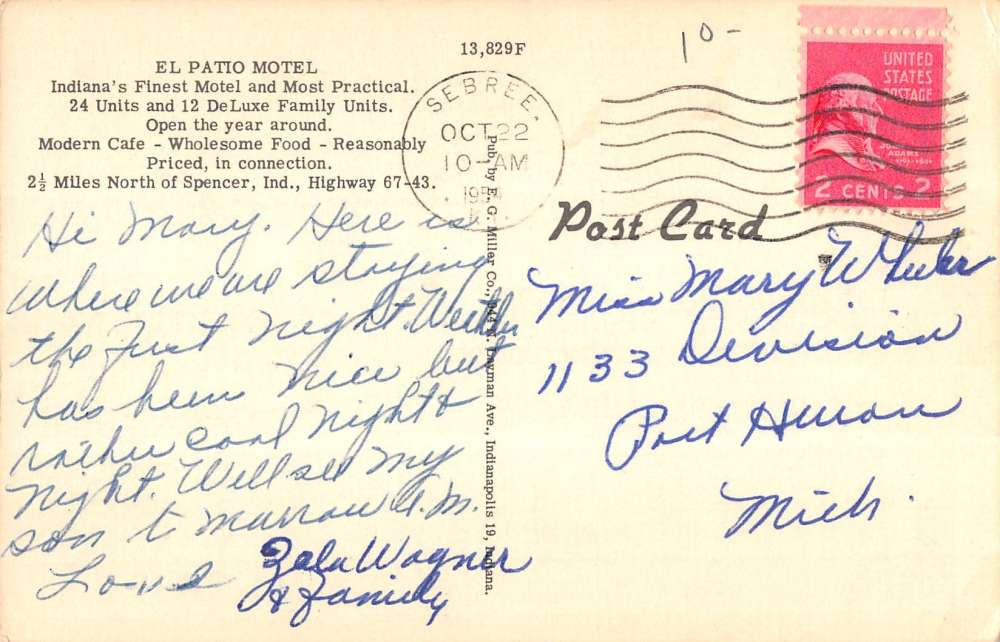 13,829F
10-
EL PATIO MOTEL
Indiana's Finest Motel and Most Practical.
24 Units and 12 DeLuxe Family Units.
Open the year around.
Modern Cafe - Wholesome Food - Reasonably
Priced, in connection.
2½ Miles North of Spencer, Ind., Highway 67-43.
Hi Mary. Here is
where we are staying
the first night. Weather
has been nice but
rather cool night &
night. Will see my
son to marrow A.M.
Love
Wagner
& Family
Pub. by E. G. Miller Co., 944 N. Layman Ave., Indianapolis 19, Indiana.
SEBREE.
OCT 22
10-AM
1954
UNITED
STATES
POSTAGE
JOHN
ADAMS
2 CENTS 2
Post Card
Miss Mary Wheeler
1133 Division
Port Huron
Mich.